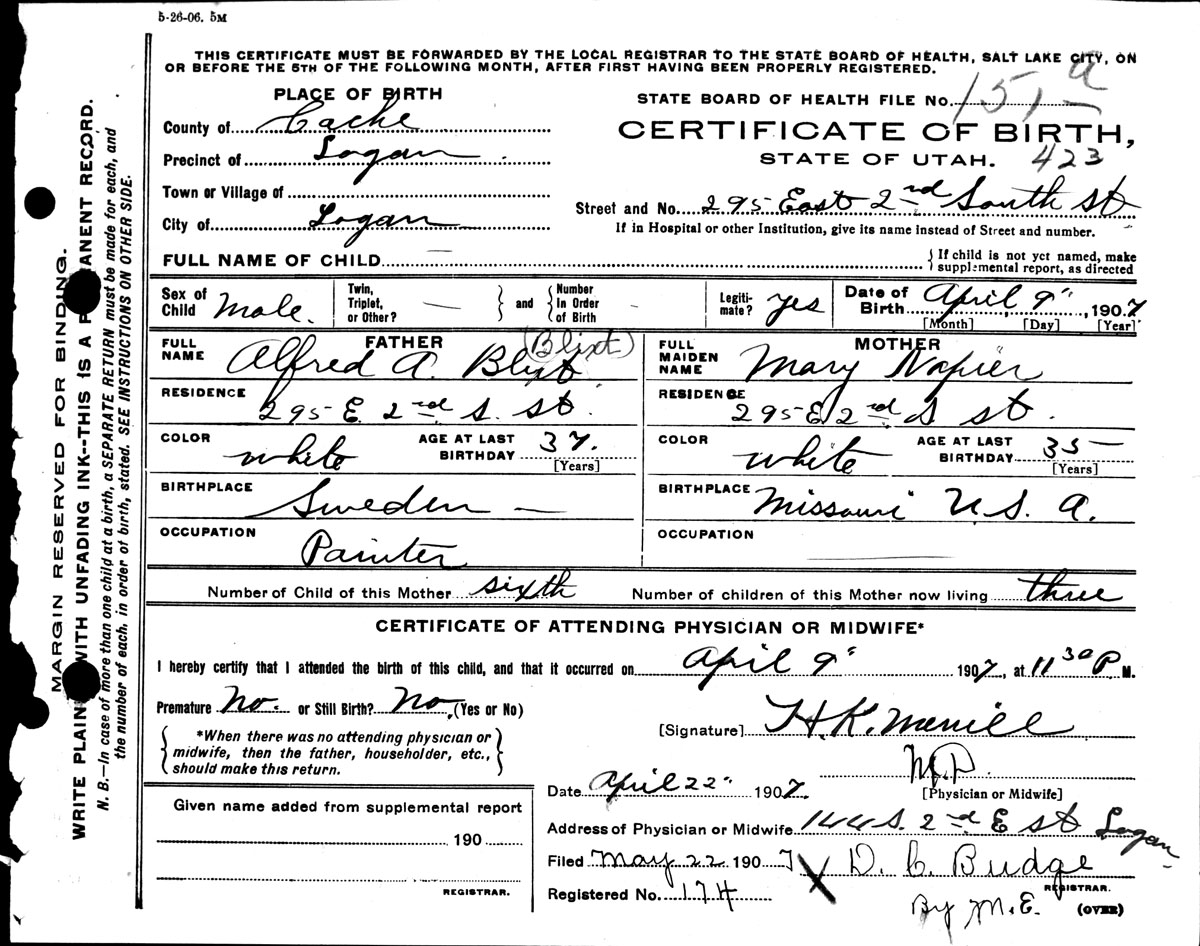 5-26-06. 5M
THIS CERTIFICATE MUST BE FORWARDED BY THE LOCAL REGISTRAR TO THE STATE BOARD OF HEALTH, SALT LAKE CITY, ON
OR BEFORE THE 5TH OF THE FOLLOWING MONTH, AFTER FIRST HAVING BEEN PROPERLY REGISTERED.
MARGIN RESERVED FOR BINDING.
WRITE PLAIN WITH UNFADING INK--THIS IS A P ANENT RECORD.
N. B.—In case of more than one child at a birth, a SEPARATE RETURN must be made for each, and
the number of each, in order of birth, stated. SEE INSTRUCTIONS ON OTHER SIDE.
PLACE OF BIRTH
County of Cache
Precinct of Logan
Town or Village of
City of Logan
STATE BOARD OF HEALTH FILE No. 151 a
CERTIFICATE OF BIRTH,
STATE OF UTAH. 423
Street and No. 295 East 2nd South St
If in Hospital or other Institution, give its name instead of Street and number.
FULL NAME OF CHILD — { If child is not yet named, make
supplemental report, as directed
Sex of Child Male.
Twin, Triplet, or Other? — } and { Number In Order of Birth
Legiti- mate? yes
Date of Birth April 9", 1907
[Month] [Day] [Year]
FATHER
FULL NAME Alfred A. Blixt (Blixt)
RESIDENCE 295 E. 2nd S. St.
COLOR white AGE AT LAST BIRTHDAY 37.
[Years]
BIRTHPLACE Sweden —
OCCUPATION Painter
MOTHER
FULL MAIDEN NAME Mary Napier
RESIDENCE 295 E 2nd S St.
COLOR white AGE AT LAST BIRTHDAY 35 —
[Years]
BIRTHPLACE Missouri U.S. A.
OCCUPATION
Number of Child of this Mother sixth Number of children of this Mother now living three
CERTIFICATE OF ATTENDING PHYSICIAN OR MIDWIFE*
I hereby certify that I attended the birth of this child, and that it occurred on April 9" 1907, at 11 30 P. M.
Premature No. or Still Birth? No. (Yes or No)
{ *When there was no attending physician or
midwife, then the father, householder, etc.,
should make this return. }
[Signature] H.K. Merrill
M.D.
[Physician or Midwife]
Date April 22" 1907.
Address of Physician or Midwife 144 S. 2nd E St Logan
Filed May 22 1907 X D. C. Budge
REGISTRAR.
Registered No. 174 By M.E. (OVER)
Given name added from supplemental report
190
REGISTRAR.